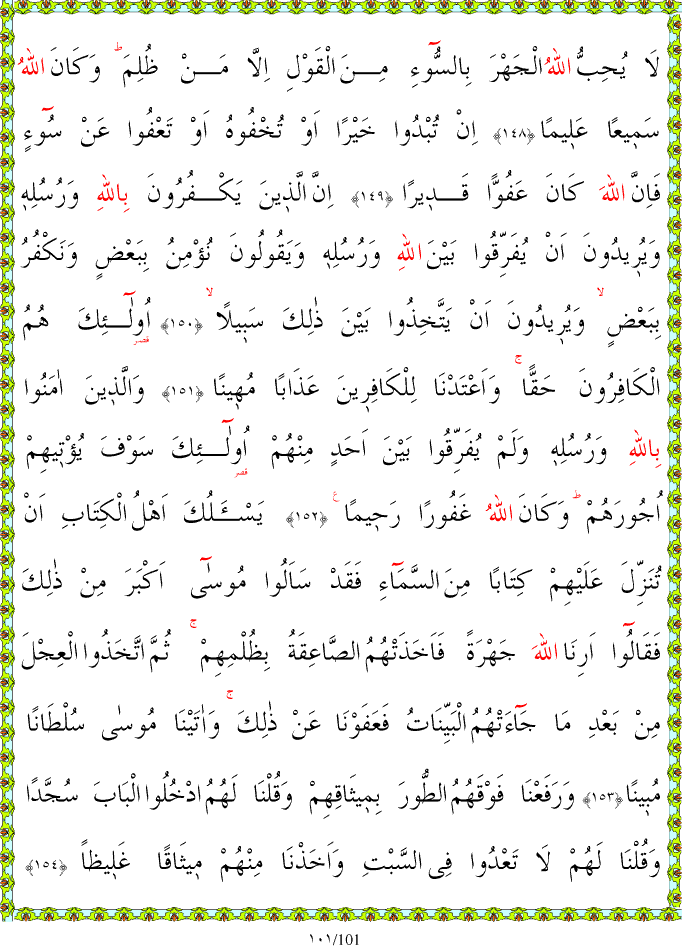 لَا يُحِبُّ اللّٰهُ الْجَهْرَ بِالسُّٓوءِ مِـــنَ الْقَوْلِ اِلَّا مَـــنْ ظُلِمَ ۜ وَكَانَ اللّٰهُ
سَمٖيعًا عَلٖيمًا ﴿١٤٨﴾ اِنْ تُبْدُوا خَيْرًا اَوْ تُخْفُوهُ اَوْ تَعْفُوا عَنْ سُٓوءٍ
فَاِنَّ اللّٰهَ كَانَ عَفُوًّا قَـــدٖيرًا ﴿١٤٩﴾ اِنَّ الَّذٖينَ يَكْـــفُرُونَ بِاللّٰهِ وَرُسُلِهٖ
وَيُرٖيدُونَ اَنْ يُفَرِّقُوا بَيْنَ اللّٰهِ وَرُسُلِهٖ وَيَقُولُونَ نُؤْمِنُ بِبَعْضٍ وَنَكْفُرُ
بِبَعْضٍ ۙ وَيُرٖيدُونَ اَنْ يَتَّخِذُوا بَيْنَ ذٰلِكَ سَبٖيلًا ۙ ﴿١٥٠﴾ اُولٰٓـــئِكَ هُمُ
قصر
الْكَافِرُونَ حَقًّا ۚ وَاَعْتَدْنَا لِلْكَافِرٖينَ عَذَابًا مُهٖينًا ﴿١٥١﴾ وَالَّذٖينَ اٰمَنُوا
بِاللّٰهِ وَرُسُلِهٖ وَلَمْ يُفَرِّقُوا بَيْنَ اَحَدٍ مِنْهُمْ اُولٰٓـــئِكَ سَوْفَ يُؤْتٖيهِمْ
قصر
اُجُورَهُمْ ۜ وَكَانَ اللّٰهُ غَفُورًا رَحٖيمًا ع ﴿١٥٢﴾ يَسْـَٔلُكَ اَهْلُ الْكِتَابِ اَنْ
تُنَزِّلَ عَلَيْهِمْ كِتَابًا مِنَ السَّمَٓاءِ فَقَدْ سَاَلُوا مُوسٰٓى اَكْبَرَ مِنْ ذٰلِكَ
فَقَالُٓوا اَرِنَا اللّٰهَ جَهْرَةً فَاَخَذَتْهُمُ الصَّاعِقَةُ بِظُلْمِهِمْ ۚ ثُمَّ اتَّخَذُوا الْعِجْلَ
مِنْ بَعْدِ مَا جَٓاءَتْهُمُ الْبَيِّنَاتُ فَعَفَوْنَا عَنْ ذٰلِكَ ۚ وَاٰتَيْنَا مُوسٰى سُلْطَانًا
مُبٖينًا ﴿١٥٣﴾ وَرَفَعْنَا فَوْقَهُمُ الطُّورَ بِمٖيثَاقِهِمْ وَقُلْنَا لَهُمُ ادْخُلُوا الْبَابَ سُجَّدًا
وَقُلْنَا لَهُمْ لَا تَعْدُوا فِى السَّبْتِ وَاَخَذْنَا مِنْهُمْ مٖيثَاقًا غَلٖيظاً ﴿١٥٤﴾
١٠١/101